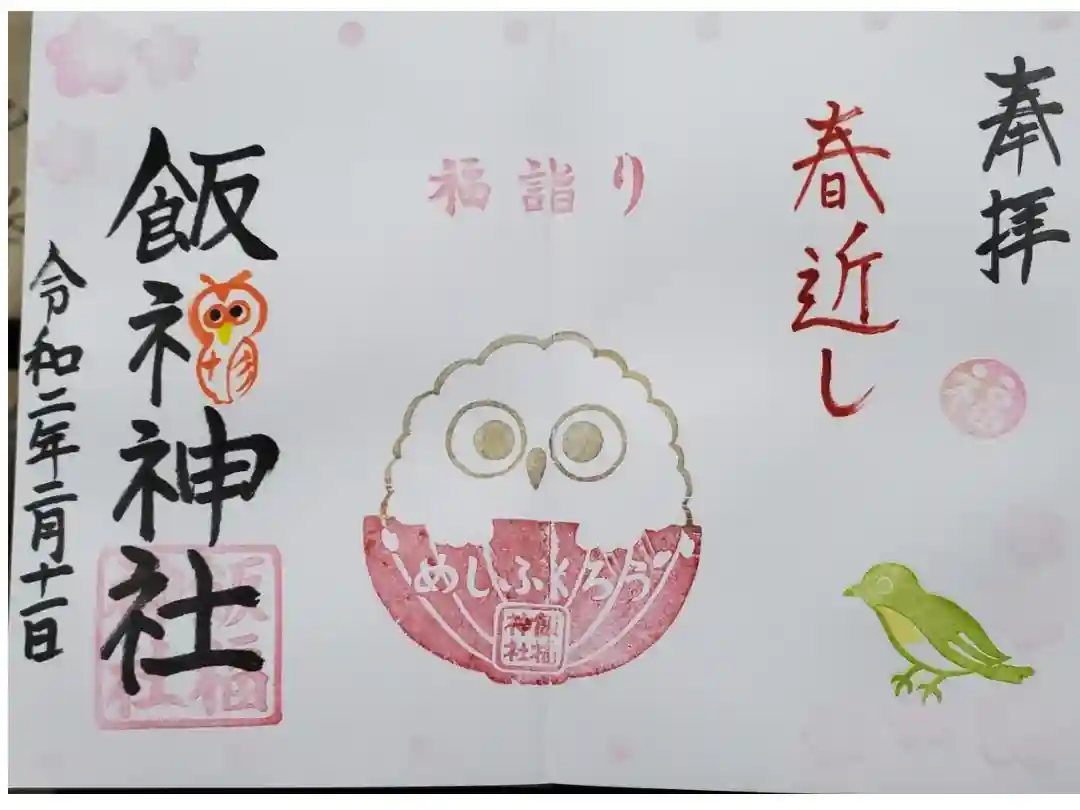 奉拝
春近し
福
福詣り
めしふくろう
飯福神社
飯福神社
飯福神社
令和二年二月十一日